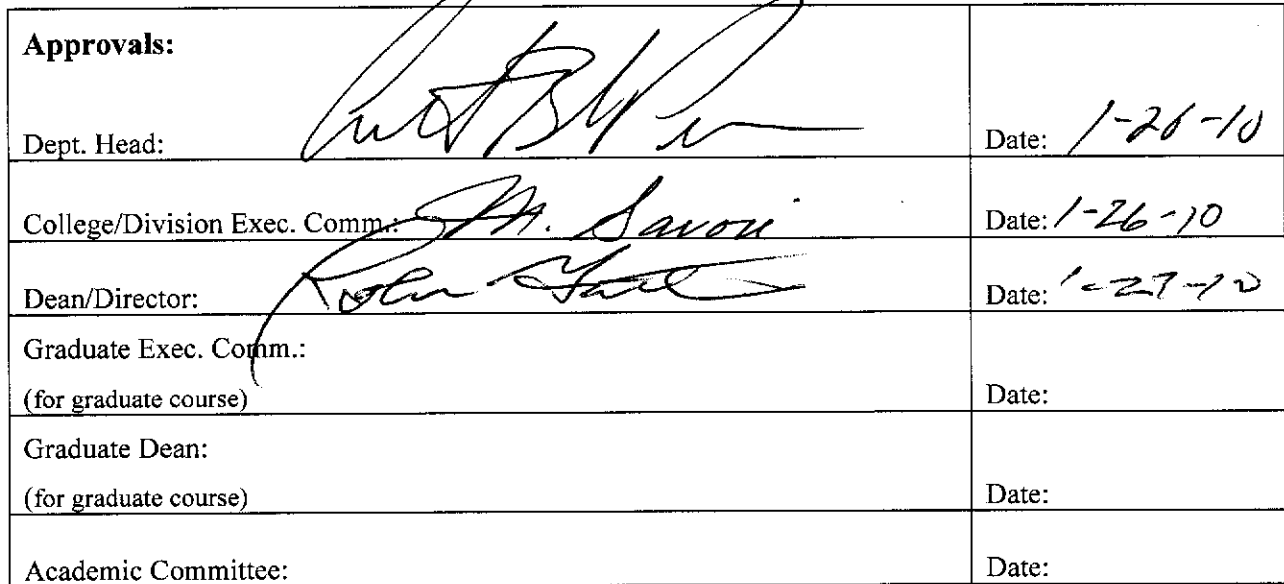 Approvals:
Dept. Head: Date: 1-26-10
College/Division Exec. Comm.: M. Savoie Date: 1-26-10
Dean/Director: Date: 1-27-10
Graduate Exec. Comm.:
(for graduate course) Date:
Graduate Dean:
(for graduate course) Date:
Academic Committee: Date: